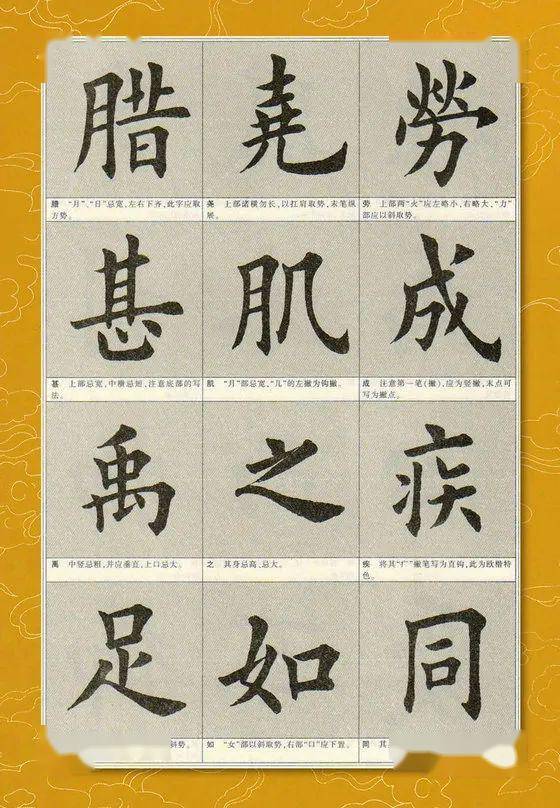 腊 堯 勞
腊 “月”、“日”忌宽,左右下齐,此字应取
方势。
堯 上部诸横勿长,以扛肩取势,末笔纵
展。
勞 上部两“火”应左略小,右略大,“力”
部应以斜取势。
甚 肌 成
甚 上部忌宽,中横忌短,注意底部的写
法。
肌 “月”部忌宽,“几”的左撇为钩撇。
成 注意第一笔(撇),应为竖撇,末点可
写为撇点。
禹 之 疾
禹 中竖忌粗,并应垂直,上口忌大。
之 其身忌高,忌大。
疾 将其“疒”撇笔写为直钩,此为欧楷特
色。
足 如 同
斜势。
如 “女”部以斜取势,右部“口”应下置。
同 其